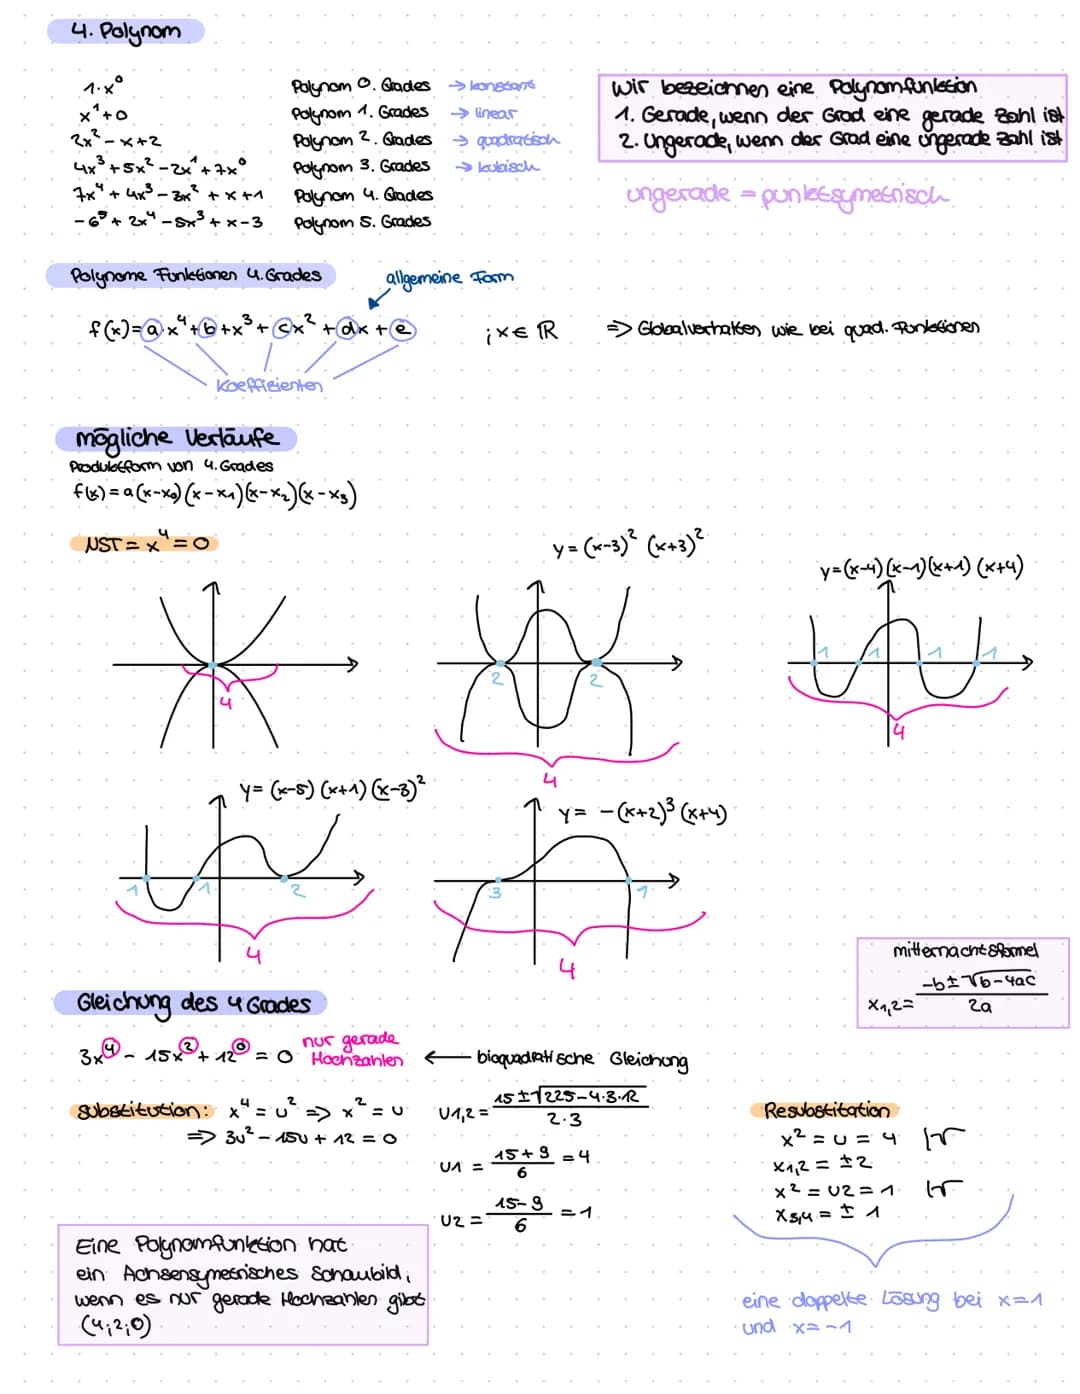 4. Polynom
1·x⁰ Polynom 0. Grades → konstant
x¹+0 Polynom 1. Grades → linear
2x²-x+2 Polynom 2. Grades → quadratisch
4x³+5x²-2x¹+7x⁰ Polynom 3. Grades → kubisch
7x⁴+4x³-3x²+x+1 Polynom 4. Grades
-6⁵+2x⁴-5x³+x-3 Polynom 5. Grades
Wir bezeichnen eine Polynomfunktion
1. Gerade, wenn der Grad eine gerade Zahl ist
2. Ungerade, wenn der Grad eine ungerade Zahl ist
ungerade = punktsymetrisch
Polynome Funktionen 4. Grades
allgemeine Form
f(x)=a·x⁴+b+x³+cx²+dx+e ; x∈ℝ => Globalverhalten wie bei quad. Funktionen
Koeffizienten
mögliche Verläufe
Produktform von 4. Grades
f(x)=a(x-x₀)(x-x₁)(x-x₂)(x-x₃)
NST = x⁴=0
y=(x-3)² (x+3)²
y=(x-4)(x-1)(x+1)(x+4)
4
2 2
4
1 1 1 1
4
y= (x-5)(x+1)(x-3)²
y= -(x+2)³(x+4)
1 1 2
4
3 1
4
mitternachtsformel
x₁,₂= -b±√b-4ac / 2a
Gleichung des 4 Grades
3x⁴ - 15x² + 12⁰ = 0 nur gerade
Hochzahlen ← bioquadratische Gleichung
Substitution: x⁴=u² => x²=u
=> 3u²-15u+12=0
u1,2= 15±√225-4·3·12 / 2·3
u1 = 15+9 / 6 = 4
u2 = 15-9 / 6 = 1
Resubstitation
x²=u=4 |√
x₁,₂ = ±2
x²=u2=1 |√
x₃,₄ = ± 1
eine doppelte Lösung bei x=1
und x=-1
Eine Polynomfunktion hat
ein Achsensymetrisches Schaubild,
wenn es nur gerade Hochzahlen gibt
(4;2;0)